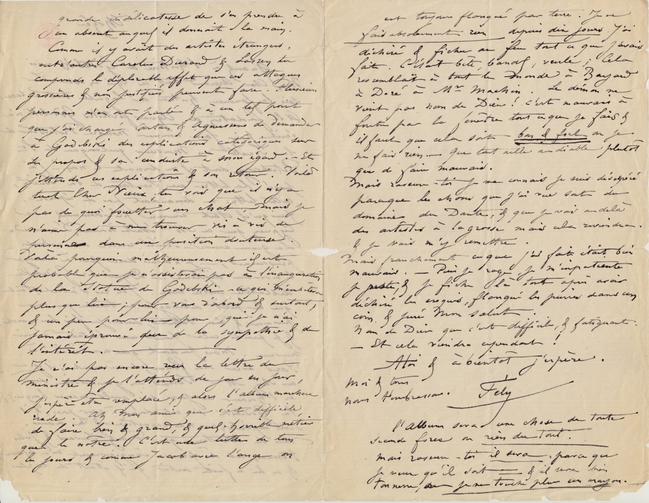 grande indélicatesse de s'en prendre à
un absent auquel il donnait la main.
Comme il y avait des artistes étrangers,
entre autres Carolus Durand &
comprends le déplorable effet que ces attaques
grossières & non justifiées peuvent faire. Plusieurs
personnes m'en ont parlé & à un tel point
que j'ai chargé & de demander
à Godebski des explications catégoriques sur
ses propos & sa conduite à mon égard. — Et
j'attends ces explications & son retour. Voilà
tout Cher Vieux, tu vois que il n'y a
pas de quoi fouetter un chat mais je
n'aime pas à me trouver vis à vis de
personne dans une position douteuse.
Voilà pourquoi malheureusement il est
probable que je n'assisterai pas à l'inauguration
de la statue de Godebski ce qui m'
plus que lui, pour toi d'abord & surtout,
& un peu pour lui pour qui je n'ai
jamais éprouvé que de la sympathie & de
l'intérêt.
Je n'ai pas encore reçu la lettre du
ministre & je l'attends de jour en jour,
& alors l'album marchera
raide. Ah mon ami que c'est difficile
de faire bien, & grand, & quel horrible métier
que le notre! C'est une lutte de tous
les jours & comme Jacob avec l'ange on
est toujours flanqué par terre. Je ne
fais absolument rien depuis dix jours. J'ai
déchiré & fichu au feu tout ce que j'avais
fait. C'était bête banal, veule; Cela
ressemblait à tout le monde à Bayard
à Doré à Mr Machin. Le démon ne
vient pas nom de Dieu! c'est mauvais à
foutre par la fenêtre tout ce que je fais &
il faut que cela soit bon & fort ou je
ne fais rien. — Que tout aille au diable plutôt
que de faire mauvais.
Mais rassure-toi je ne suis désespéré
parceque les choses que j'ai vues sont du
domaine du Dante, & que je vois au delà
des artistes à la grosse mais cela reviendra
& je vais m'y remettre.
Mais franchement ce que j'ai fait était bien
mauvais. — Puis je rage je m'impatiente
je peste & je fiche là tout après avoir
déchiré les croquis, flanqué les pierres dans un
coin, & juré mon salut.
Nom de Dieu que c'est difficile, & fatigant.
— Et cela viendra cependant!
A toi & à bientôt j'espère.
Moi & tous
nous t'embrassons.
Fély
l'album sera une chose de toute
ou rien du tout.
mais rassure-toi il sera, parce que
je veux qu'il soit — & il sera bien
tonnerre, ou je ne touche plus un crayon.